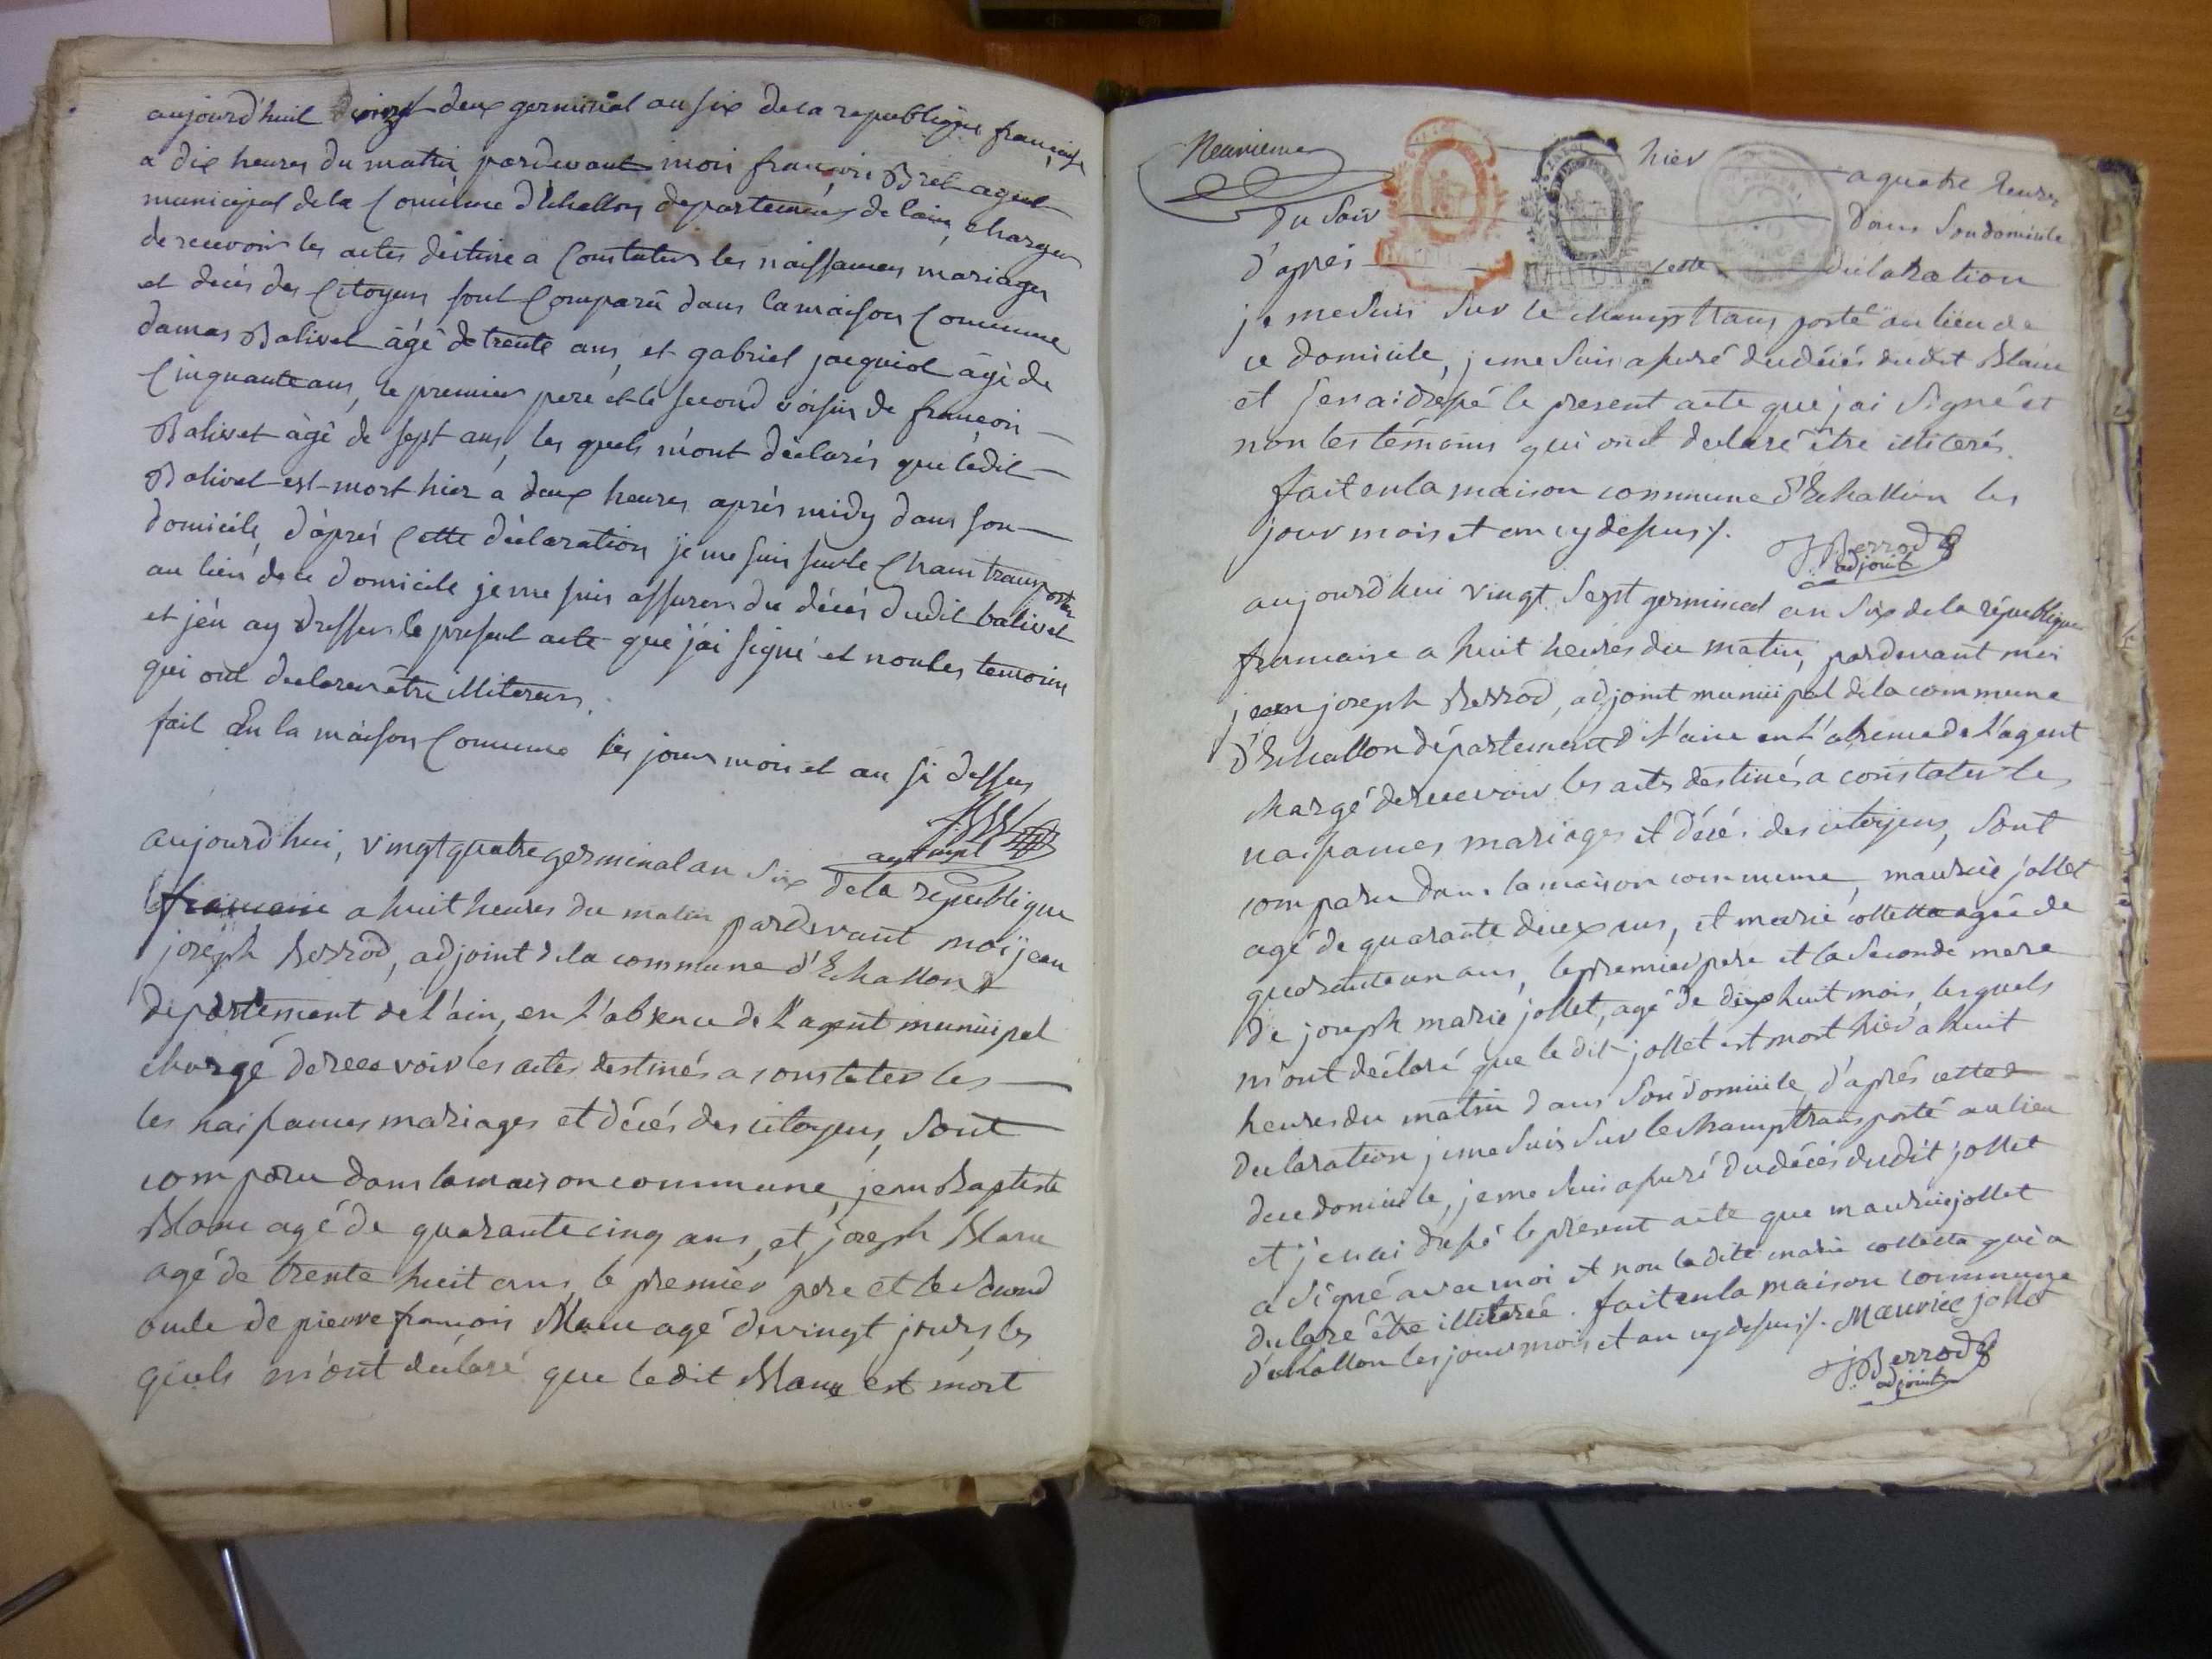 aujourd'huil vingt deux germinal an six de la republique française
a dix heures du matin pardevant moi francois Bret agent
municipal de la Comune d'Echallon departement de lain, charger
de recevoir les actes destine a Constater les naissances mariages
et decés des Citoyens sont Comparu dans la maison Comune
damas Balivet âgé de trente ans, et gabriel jacquiot âgé de
Cinquante ans, le premier pere et le second voisin de francois
Balivet âgé de sept ans, les quels m'ont déclarés que ledit
Balivet est mort hier a deux heures aprés midy dans son
domicile, d'aprés Cette déclaration je me suis surle Cham transporter
au lieu de ce domicile je me suis assurer du décés dudit balivet
et j'én ay dresser le present acte que j'ai signé et nonles temoins
qui ont declarer être illiterers.
fait En la maison Comune les jour mois et an si dessus
agt mpl
aujourd'hui, vingt quatre germinal an six de la republique
francaise a huit heures du matin pardevant moi jean
joseph Berrod, adjoint de la commune d'Echallon
departement de l'ain, en l'absence de l'agent municipal
chargé de recevoir les actes destinés a constater les
les naissances mariages et décés des citoyens, sont
comparu dans la maison commune, jean Baptiste
Blanc agé de quarante cinq ans, et joseph Blanc
agé de trente huit ans, le premier pere et le second
oncle de pierre francois Blanc agé de vingt jours, les
quels m'ont déclaré que ledit Blanc est mort
Neuvieme
hier a quatre heures
du soir dans son domicile
d'aprés cette déclaration
je me suis sur le champ transporté au lieu de
ce domicile, je me suis assuré du décés dudit Blanc
et j'en ai dressé le present acte que j'ai signé et
non les témoins qui ont declaré être illiterés.
fait en la maison commune d'Echallon les
jour mois et an cy dessus.
JJBerrod
adjoint
aujourd'hui vingt sept germinal an six de la république
francaise a huit heures du matin, pardevant moi
jean joseph Berrod, adjoint municipal de la commune
d'Echallon département de l'ain en l'absence de l'agent
chargé de recevoir les actes destinés a constater les
naissances mariages et décés des citoyens, sont
comparu dans la maison commune, maurice jollet
agé de quarante deux ans, et marie colletta agée de
quarante un ans, le premier pere et la seconde mere
de joseph marie jollet, agé de dix huit mois, lesquels
m'ont déclaré que le dit jollet est mort hier a huit
heures du matin dans son domicile, d'aprés cette
declaration je me suis sur le champ transporté au lieu
de ce domicile, je me suis assuré du décés dudit jollet
et j'en ai dressé le present acte que maurice jollet
a signé avec moi et non la dite marie colletta qui a
declaré être illiterée. fait en la maison commune
d'echallon les jour mois et an cy dessus. Maurice jollet
JJBerrod
adjoint